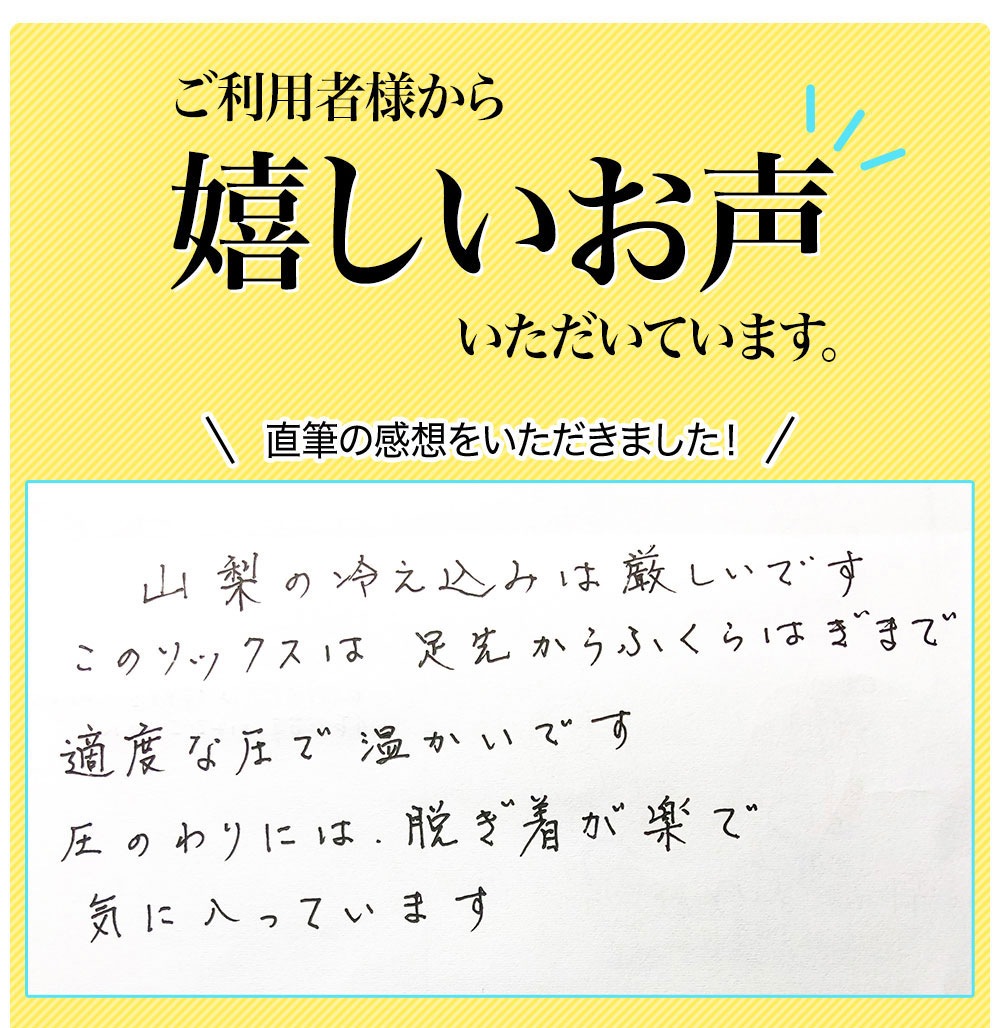 ご利用者様から
嬉しいお声
いただいています。
直筆の感想をいただきました!
山梨の冷え込みは厳しいです
このソックスは 足先からふくらはぎまで
適度な圧で温かいです
圧のわりには、脱ぎ着が楽で
気に入っています